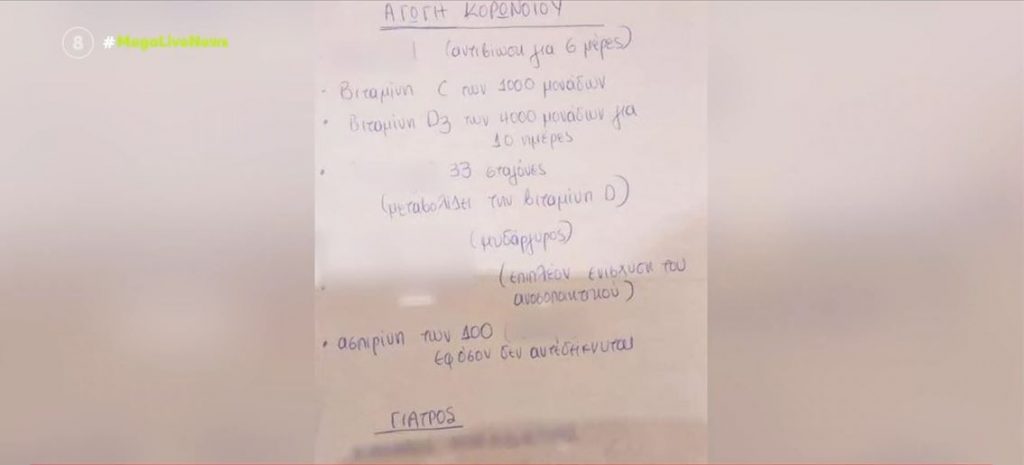 8 #MegaLiveNews
ΑΓΩΓΗ ΚΟΡΩΝΟΙΟΥ
1 (αντιβίωση για 6 μέρες)
- Βιταμίνη C των 1000 μονάδων
• Βιταμίνη D3 των 4000 μονάδων για
10 ημέρες
• 33 σταγόνες
(μεταβολίζει την βιταμίνη D)
(μυδάργυρος)
(επιπλέον ενίσχυση του
ανοσοποιητικού)
• ασπιρίνη των 100 (
εφόσον δεν αντεδείκνυται
ΓΙΑΤΡΟΣ